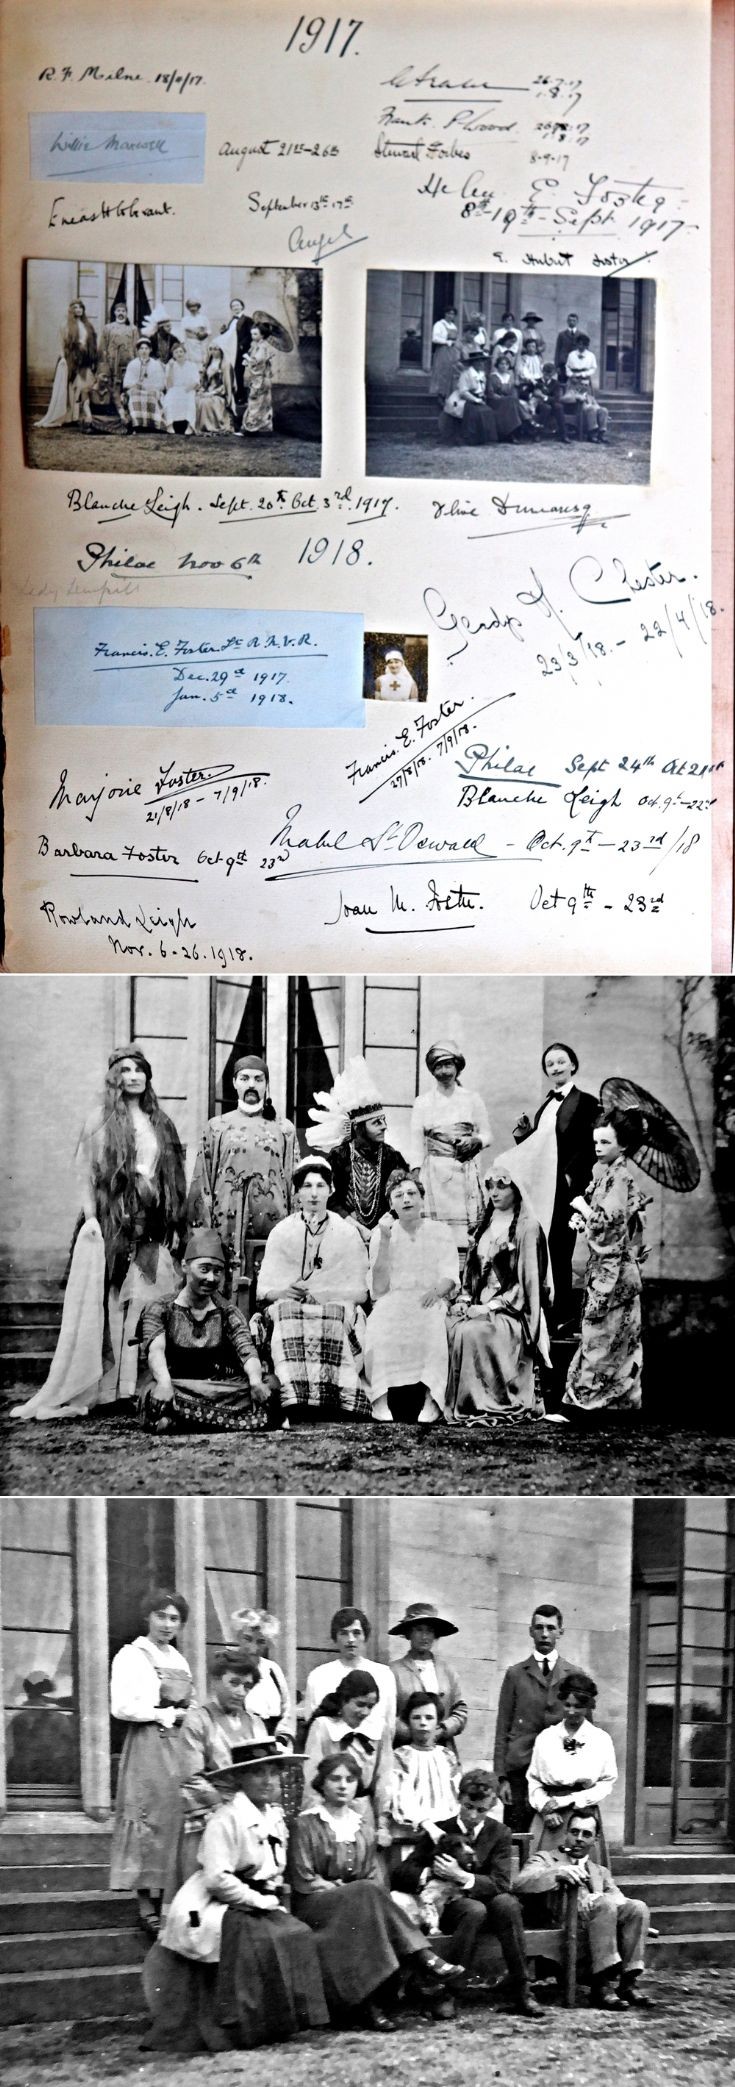 1917.
R. F. Milne. 18/9/17.
26-7-17
1.8.17
Frank P. Wood.
1.8.17
Willie Maxwell
August 21st-26th
Stewart Forbes
8-9-17
Helen E. Foster
8th-19th-Sept 1917
September 13th 17th
Angel
E. Hubert Foster
Blanche Leigh. Sept. 20th Oct 3rd. 1917.
Olive Dumaresq
Philae Nov 6th
1918.
Lady Sempill
Gladys M. Chester.
23/3/18. - 22/4/18.
Francis. E. Foster. Lt R.N.V.R.
Dec. 29th 1917.
Jan. 5th 1918.
Francis. E. Foster.
27/8/18. 7/9/18.
Marjorie Foster.
21/8/18 - 7/9/18.
Philae Sept 24th Oct 21st
Blanche Leigh Oct. 9th-22nd
Mabel St Oswald - Oct. 9th - 23rd/18
Barbara Foster Oct 9th 23rd
Joan M. Foster. Oct 9th - 23rd
Rowland Leigh
Nov. 6-26. 1918.